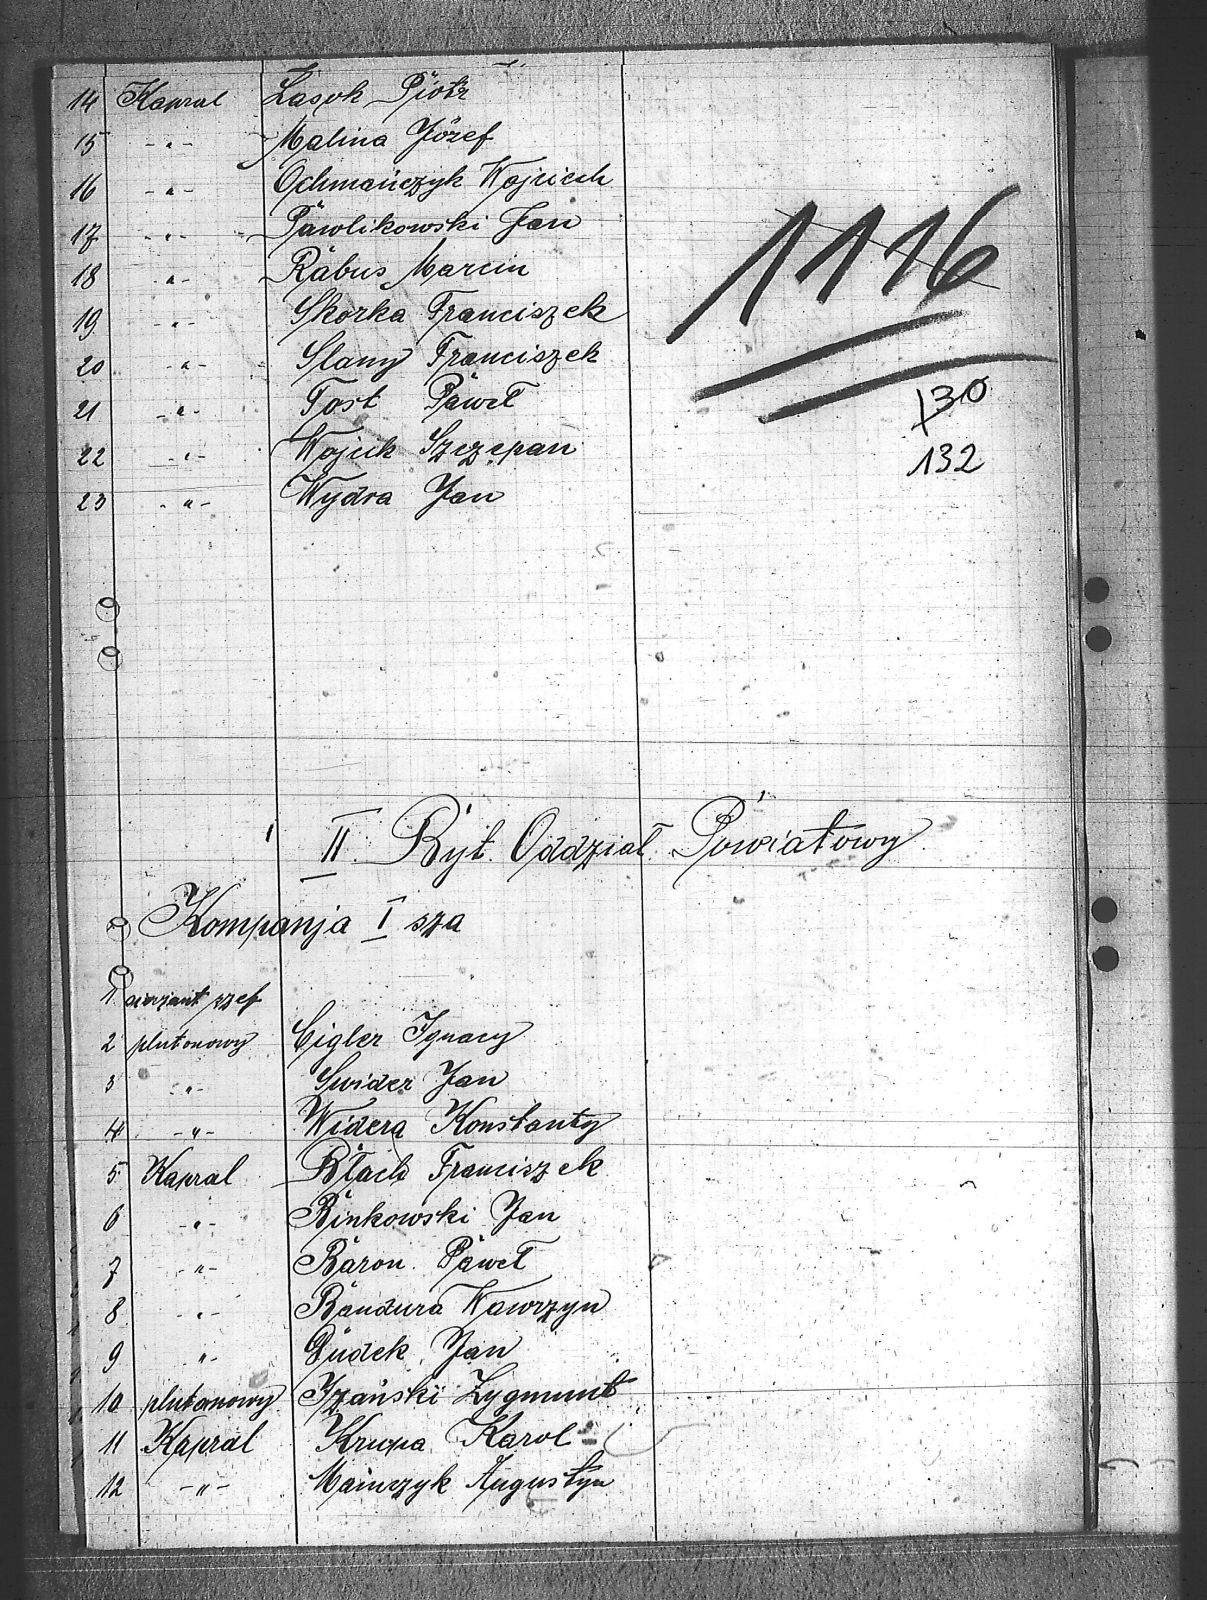 14 Kapral Lasok Piotr
15 -"- Malina Józef
16 -"- Ochmańczyk Wojciech
17 -"- Pawlikowski Jan
18 -"- Rabus Marcin
19 -"- Skorka Franciszek
20 -"- Slany Franciszek
21 -"- Tost Paweł
22 -"- Wojcik Szczepan
23 -"- Wydra Jan
1116
130
132
II Byt. Oddział Powiatowy
Kompanja I sza
1 szef
2 plutonowy Cigler Ignacy
3 -"- Swider Jan
4 -"- Widera Konstanty
5 Kapral Błach Franciszek
6 -"- Binkowski Jan
7 -"- Baron Paweł
8 -"- Bandura Wawrzyn
9 -"- Dudek Jan
10 plutonowy Zygmunt
11 Kapral Krupa Karol
12 -"- Mainczyk Augustyn